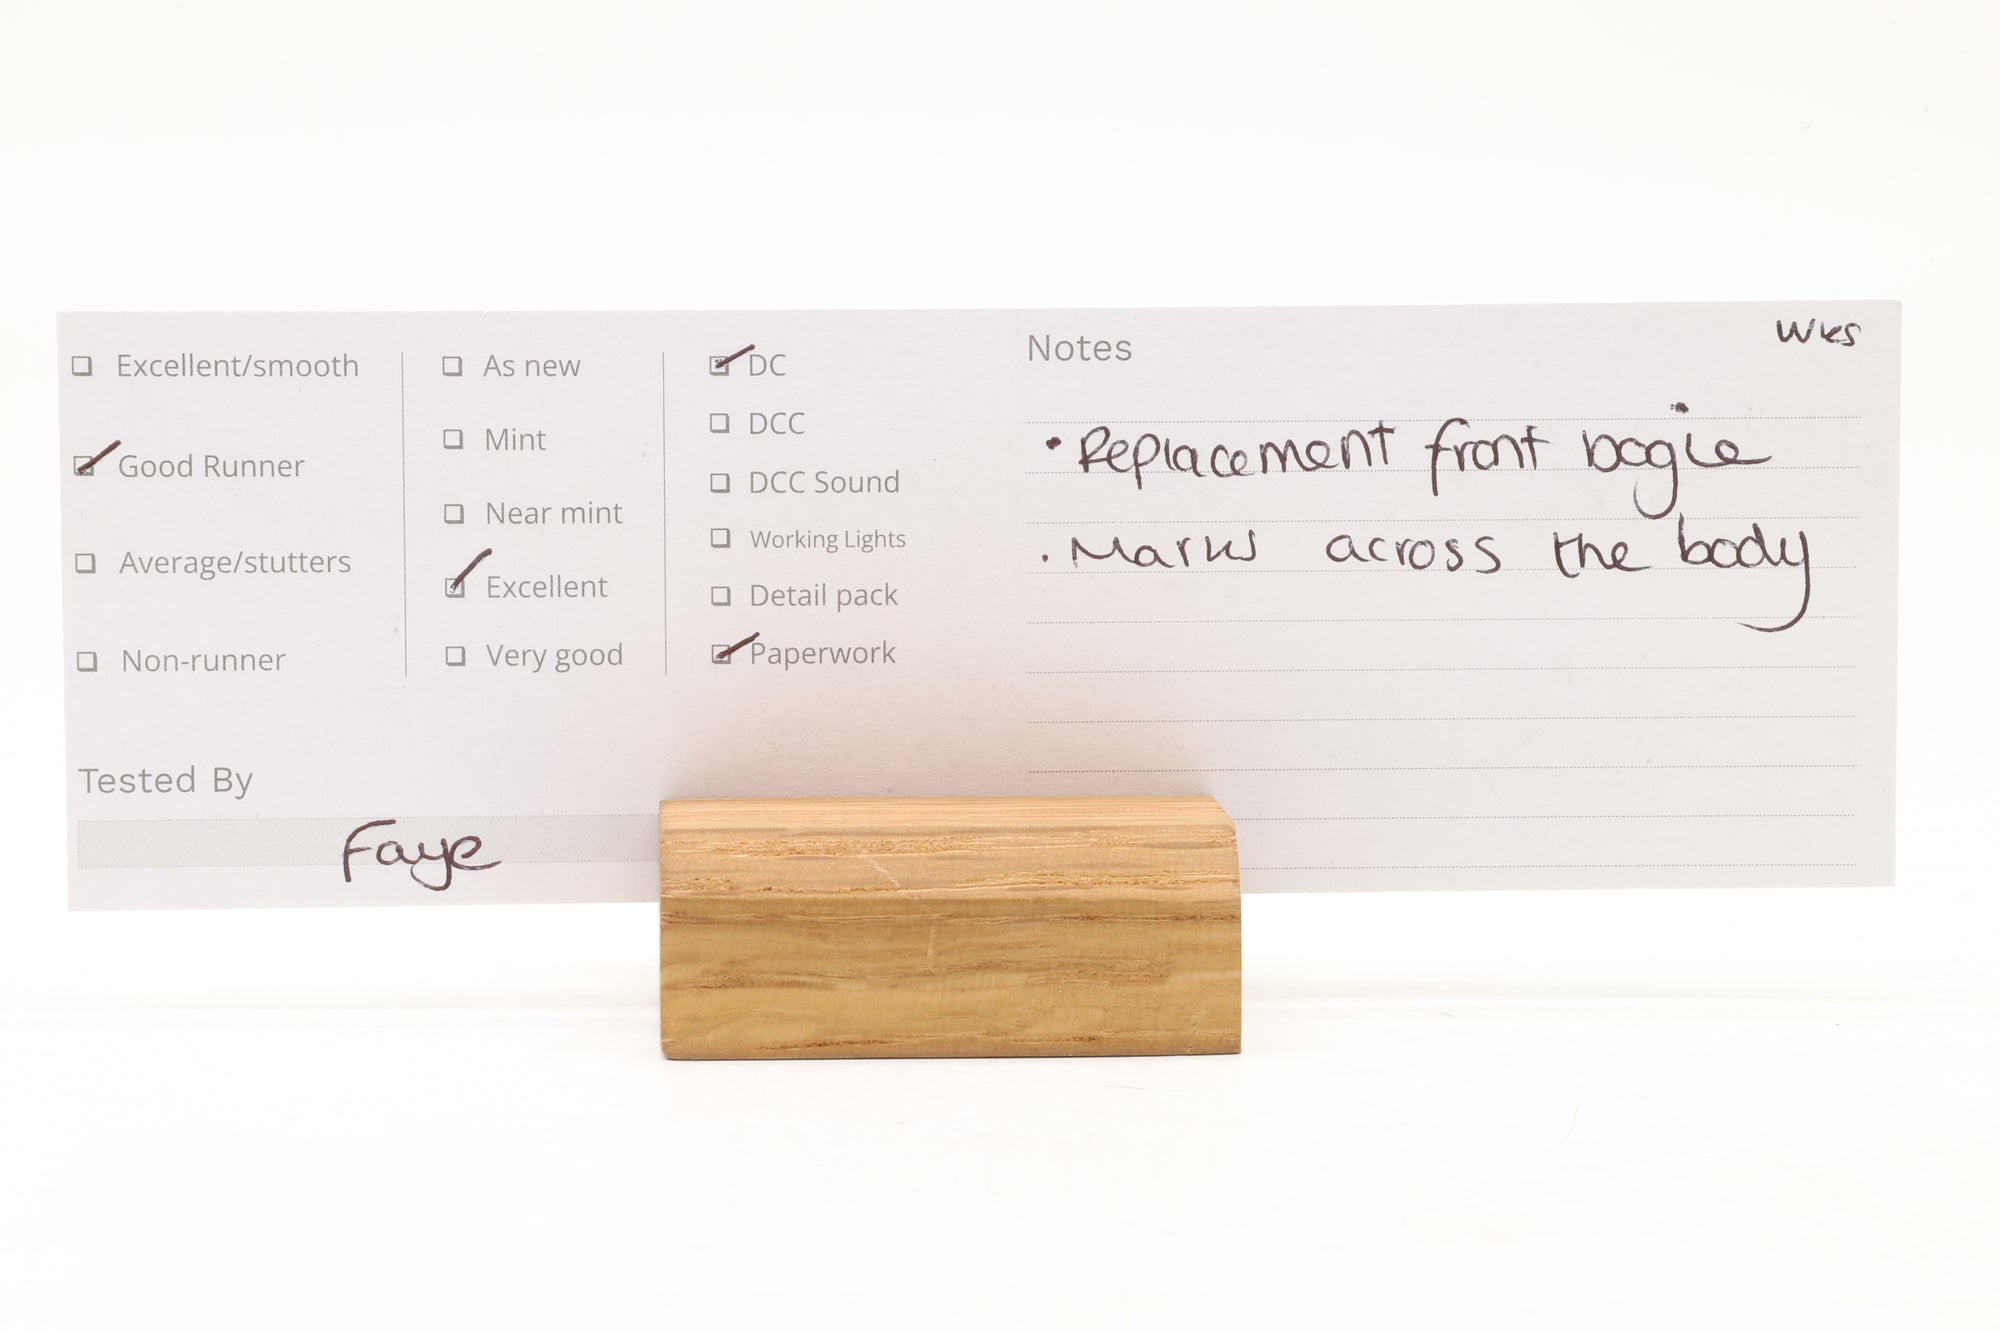 Excellent/smooth
Good Runner
Average/stutters
Non-runner
As new
Mint
Near mint
Excellent
Very good
DC
DCC
DCC Sound
Working Lights
Detail pack
Paperwork
Tested By
Faye
Notes
wks
• Replacement front bogie
• Marks across the body